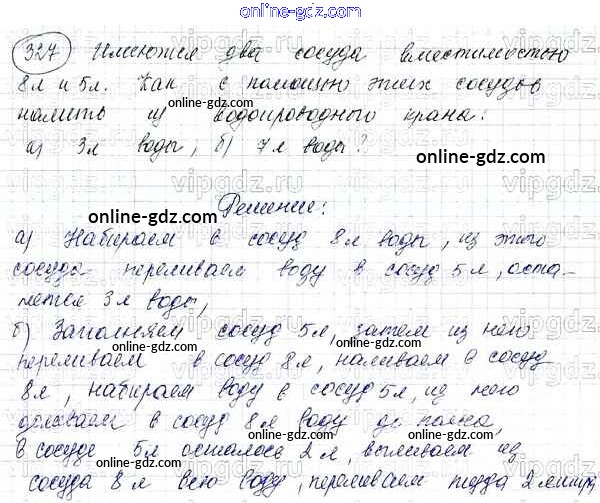 online-gdz.com
327 Имеются два сосуда вместимостью
8л и 5л. Как с помощью этих сосудов
налить из водопроводного крана:
а) 3л воды, б) 7л воды?
Решение:
а) Набираем в сосуд 8л воды, из этого
сосуда переливаем воду в сосуд 5л, оста-
нется 3л воды,
б) Заполняем сосуд 5л, затем из него
переливаем в сосуд 8л, наливаем в сосуд
8л, набираем воду в сосуд 5л, из него
доливаем в сосуд 8л воду до полна,
в сосуде 5л осталось 2л, выливаем из
сосуда 8л всю воду, переливаем туда 2 литра